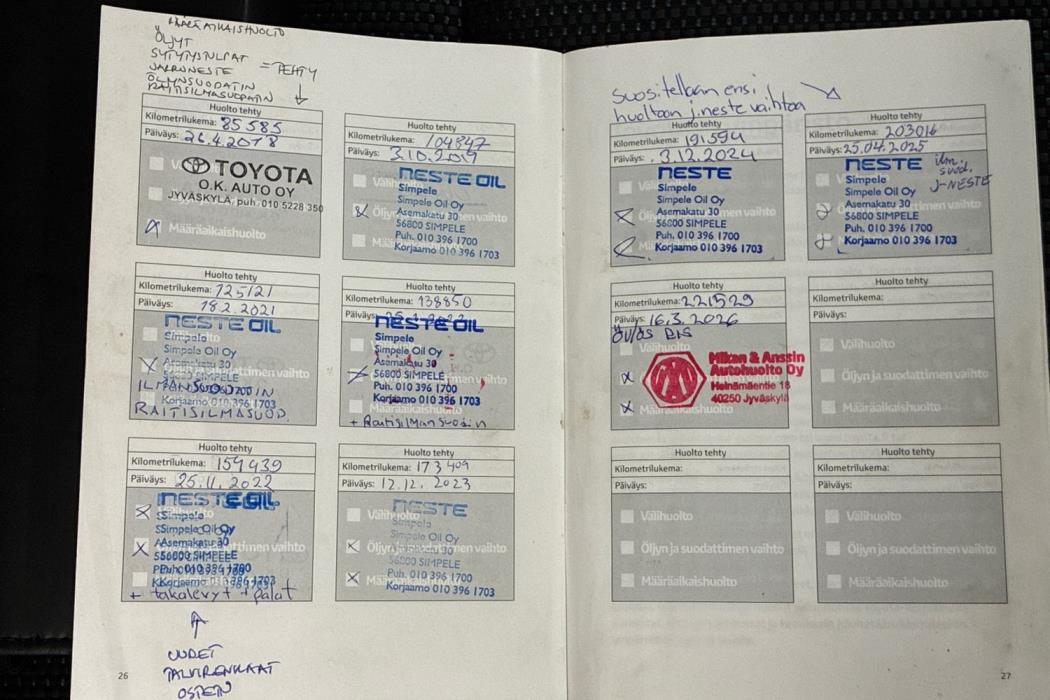 MÄÄRÄAIKAISHUOLTO
ÖLJYT
SYTYTYSTULPAT
JARRUNESTE = TEHTY
ÖLJYNSUODATIN
RAITISILMASUODATIN
Huolto tehty
Kilometrilukema: 85585
Päiväys: 26.4.2018
TOYOTA
O.K. AUTO OY
JYVÄSKYLÄ, puh. 010 5228 350
Määräaikaishuolto
Huolto tehty
Kilometrilukema: 104847
Päiväys: 3.10.2019
NESTE OIL
Simpele
Simpele Oil Oy
Asemakatu 30
56800 SIMPELE
Puh. 010 396 1700
Korjaamo 010 396 1703
Huolto tehty
Kilometrilukema: 125121
Päiväys: 18.2.2021
NESTE OIL
Simpele
Simpele Oil Oy
Asemakatu 30
56800 SIMPELE
ILMANSUODATIN
Korjaamo 010 396 1703
RAITISILMASUOD
Huolto tehty
Kilometrilukema: 138850
Päiväys:
NESTE OIL
Simpele
Simpele Oil Oy
Asemakatu 30
56800 SIMPELE
Puh. 010 396 1700
Korjaamo 010 396 1703
+ Raitisilmansuodin
Huolto tehty
Kilometrilukema: 159939
Päiväys: 25.11.2022
NESTE OIL
Simpele
Simpele Oil Oy
Asemakatu 30
56800 SIMPELE
Puh. 010 396 1700
Korjaamo 010 396 1703
+ takalevyt + palat
Huolto tehty
Kilometrilukema: 173409
Päiväys: 12.12.2023
NESTE
Simpele
Simpele Oil Oy
56800 SIMPELE
Puh. 010 396 1700
Korjaamo 010 396 1703
UUDET
TALVIRENKAAT
OSTETN
26
suositellaan ensi
huoltoon j.neste vaihtoa
Huolto tehty
Kilometrilukema: 191594
Päiväys: 3.12.2024
NESTE
Simpele
Simpele Oil Oy
Asemakatu 30
56800 SIMPELE
Puh. 010 396 1700
Korjaamo 010 396 1703
Huolto tehty
Kilometrilukema: 203016
Päiväys: 25.04.2025
NESTE
ilm.
suod.
J-NESTE
Simpele
Simpele Oil Oy
Asemakatu 30
56800 SIMPELE
Puh. 010 396 1700
Korjaamo 010 396 1703
Huolto tehty
Kilometrilukema: 221529
Päiväys: 16.3.2026
Välihuolto
Mikan & Anssin
Autohuolto Oy
Heinämäentie 18
40250 Jyväskylä
Huolto tehty
Kilometrilukema:
Päiväys:
Välihuolto
Öljyn ja suodattimen vaihto
Määräaikaishuolto
Huolto tehty
Kilometrilukema:
Päiväys:
Välihuolto
Öljyn ja suodattimen vaihto
Määräaikaishuolto
Huolto tehty
Kilometrilukema:
Päiväys:
Välihuolto
Öljyn ja suodattimen vaihto
Määräaikaishuolto
27